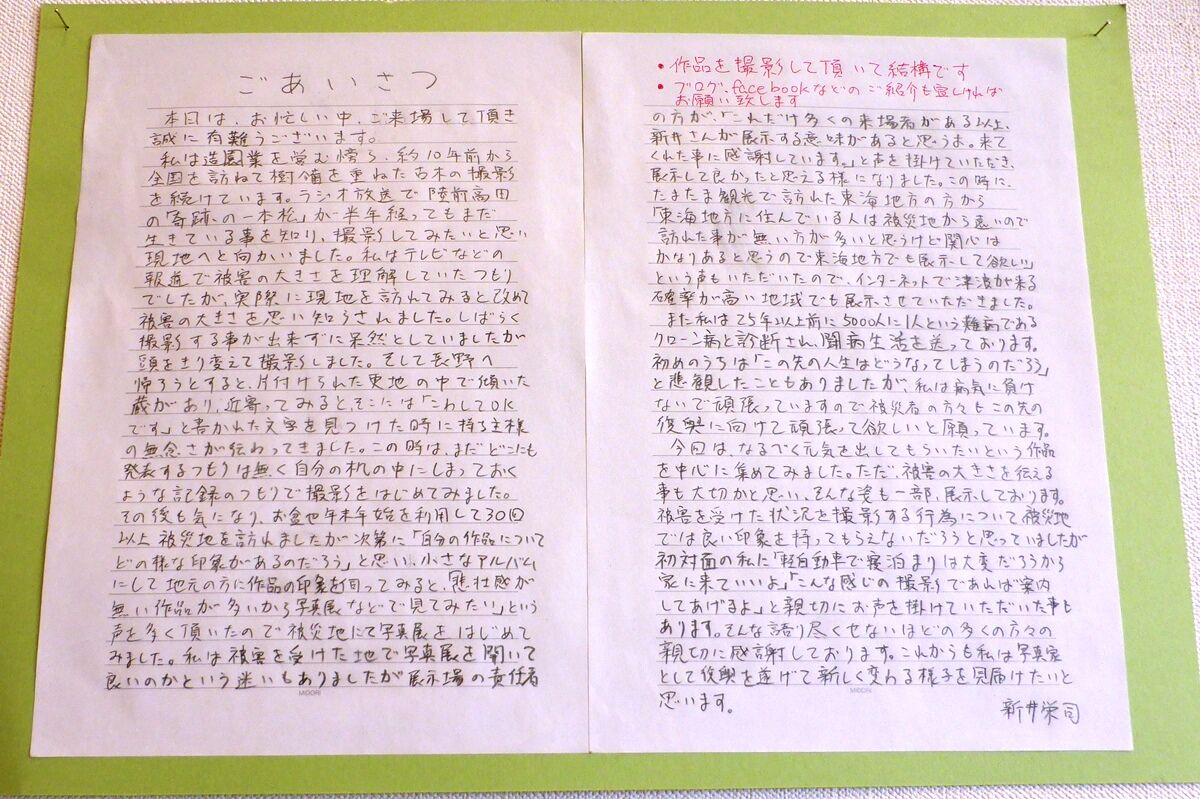 ごあいさつ
本日は、お忙しい中、ご来場して頂き
誠に有難うございます。
私は造園業を営む傍ら、約10年前から
全国を訪ねて樹齢を重ねた古木の撮影
を続けています。ラジオ放送で陸前高田
の「奇跡の一本松」が半年経ってもまだ
生きている事を知り、撮影してみたいと思い
現地へと向かいました。私はテレビなどの
報道で被害の大きさを理解していたつもり
でしたが、実際に現地を訪れてみると改めて
被害の大きさを思い知らされました。しばらく
撮影する事が出来ずに呆然としていましたが
頭をきり変えて撮影しました。そして長野へ
帰ろうとすると、片付けられた更地の中で傾いた
蔵があり、近寄ってみると、そこには「こわしてOK
です」と書かれた文字を見つけた時に持ち主様
の無念さが伝わってきました。この時は、まだどこにも
発表するつもりは無く自分の机の中にしまっておく
ような記録のつもりで撮影をはじめてみました。
その後も気になり、お盆や年末年始を利用して30回
以上被災地を訪れましたが次第に「自分の作品について
どの様な印象があるのだろう」と思い、小さなアルバム
にして地元の方に作品の印象を伺ってみると、「悲壮感が
無い作品が多いから写真展などで見てみたい」という
声を多く頂いたので被災地にて写真展をはじめて
みました。私は被害を受けた地で写真展を開いて
良いのかという迷いもありましたが展示場の責任者
MIDORI
・作品を撮影して頂いて結構です
・ブログ、facebookなどのご紹介も宜しければ
お願い致します
の方が、「これだけ多くの来場者がある以上、
新井さんが展示する意味があると思うよ。来て
くれた事に感謝しています。」と声を掛けていただき、
展示して良かったと思える様になりました。この時に、
たまたま観光で訪れた東海地方の方から
「東海地方に住んでいる人は被災地から遠いので
訪れた事が無い方が多いと思うけど関心は
かなりあると思うので東海地方でも展示して欲しい」
という声もいただいたので、インターネットで津波が来る
確率が高い地域でも展示させていただきました。
また私は25年以上前に5000人に1人という難病である
クローン病と診断され、闘病生活を送っております。
初めのうちは「この先の人生はどうなってしまうのだろう」
と悲観したこともありましたが、私は病気に負け
ないで頑張っていますので被災者の方々もこの先の
復興に向けて頑張って欲しいと願っています。
今回は、なるべく元気を出してもらいたいという作品
を中心に集めてみました。ただ、被害の大きさを伝える
事も大切かと思い、そんな姿も一部、展示しております。
被害を受けた状況を撮影する行為について被災地
では良い印象を持ってもらえないだろうと思っていましたが
初対面の私に「軽自動車で寝泊まりは大変だろうから
家に来ていいよ」「こんな感じの撮影であれば案内
してあげるよ」と親切にお声を掛けていただいた事も
あります。そんな語り尽くせないほどの多くの方々の
親切に感謝しております。これからも私は写真家
として復興を遂げて新しく変わる様子を見届けたいと
思います。
MIDORI
新井栄司